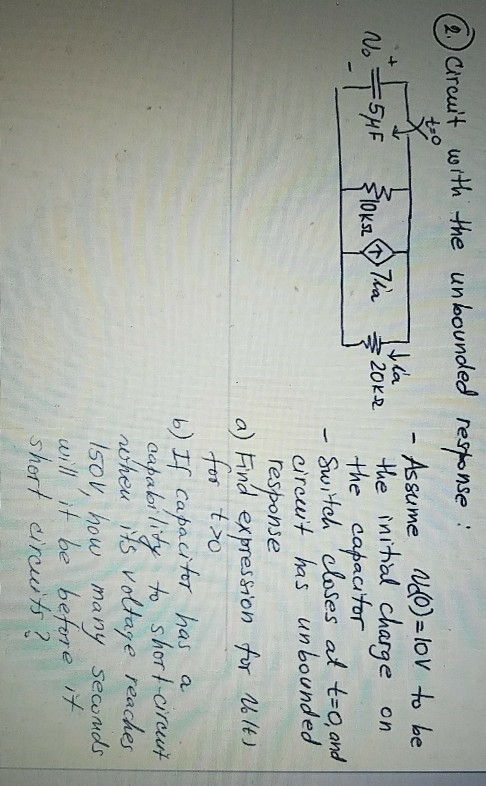 2. Circuit with the unbounded response :
t=0
+
Vo
-
5μF
10kΩ
7ia
ia
20kΩ
- Assume Vc(0)=10V to be
the initial charge on
the capacitor
- Switch closes at t=0, and
circuit has unbounded
response
a) Find expression for Vo(t)
for t>0
b) If capacitor has a
capability to short-circuit
when its voltage reaches
150V, how many seconds
will it be before it
short circuits?